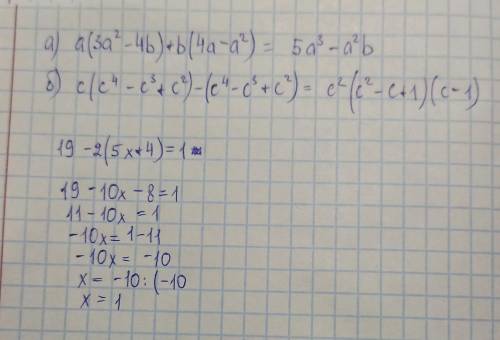 а) a(3a² - 4b) + b(4a - a²) = 5a³ - a²b
б) c(c⁴ - c³ + c²) - (c⁴ - c³ + c²) = c²(c² - c + 1)(c - 1)
19 - 2(5x + 4) = 1
19 - 10x - 8 = 1
11 - 10x = 1
-10x = 1 - 11
-10x = -10
x = -10 : (-10
x = 1